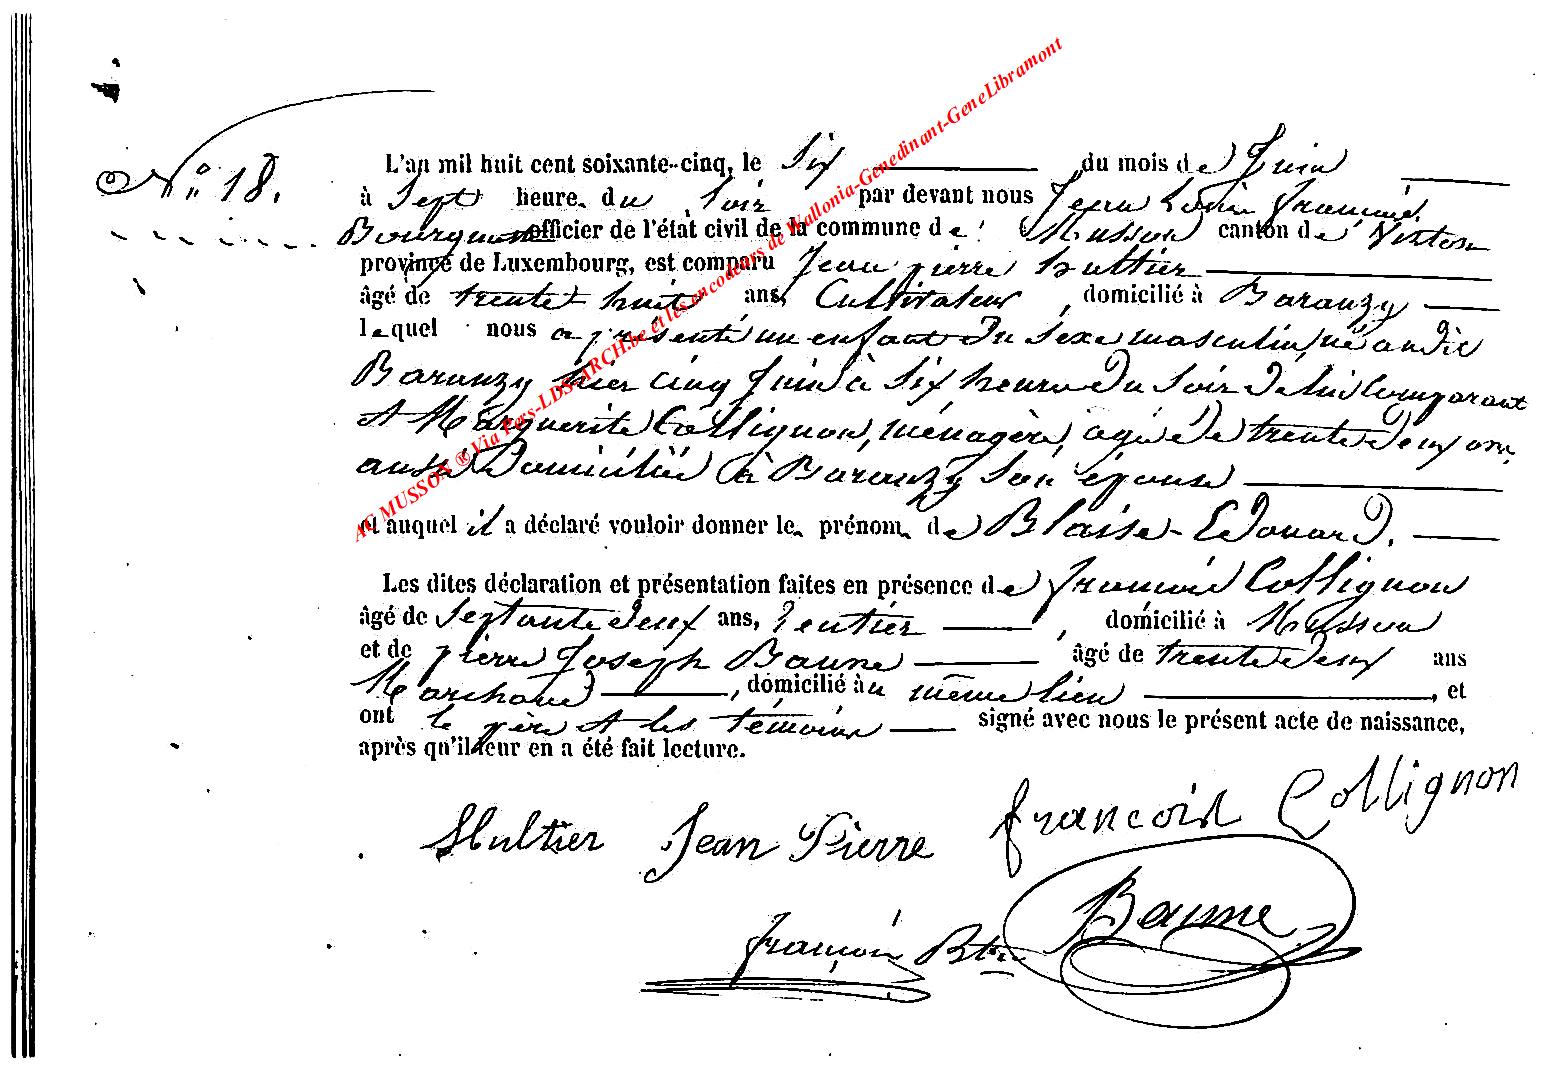 N° 18.
L'an mil huit cent soixante-cinq, le Six du mois de Juin
à Sept heure. du Soir par devant nous Jean Louis François
officier de l'état civil de la commune de Musson canton de Virton
province de Luxembourg, est comparu Jean pierre hultier
âgé de trente huit ans, Cultivateur, domicilié à Baranzy
lequel nous a présenté un enfant du Sexe masculin, né au dit
Baranzy hier cinq Juin à Six heure du Soir de lui Comparant
et Marguerite Collignon, ménagère, agée de trente deux ans,
aussi Domiciliée à Baranzy Son épouse
et auquel il a déclaré vouloir donner le prénom de Blaise-Edouard.
Les dites déclaration et présentation faites en présence de françois Collignon
âgé de Septante deux ans, rentier, domicilié à Musson
et de pierre Joseph Baune âgé de trente deux ans
Marchand, domicilié au même lieu, et
ont le père et les témoins signé avec nous le présent acte de naissance,
après qu'il leur en a été fait lecture.
Hultier Jean Pierre francois Collignon
Baune
françois
AC MUSSON ® Via Pers-LDS-ARCH.be et les encodeurs de Wallonia-Genedinant-GeneLibramont